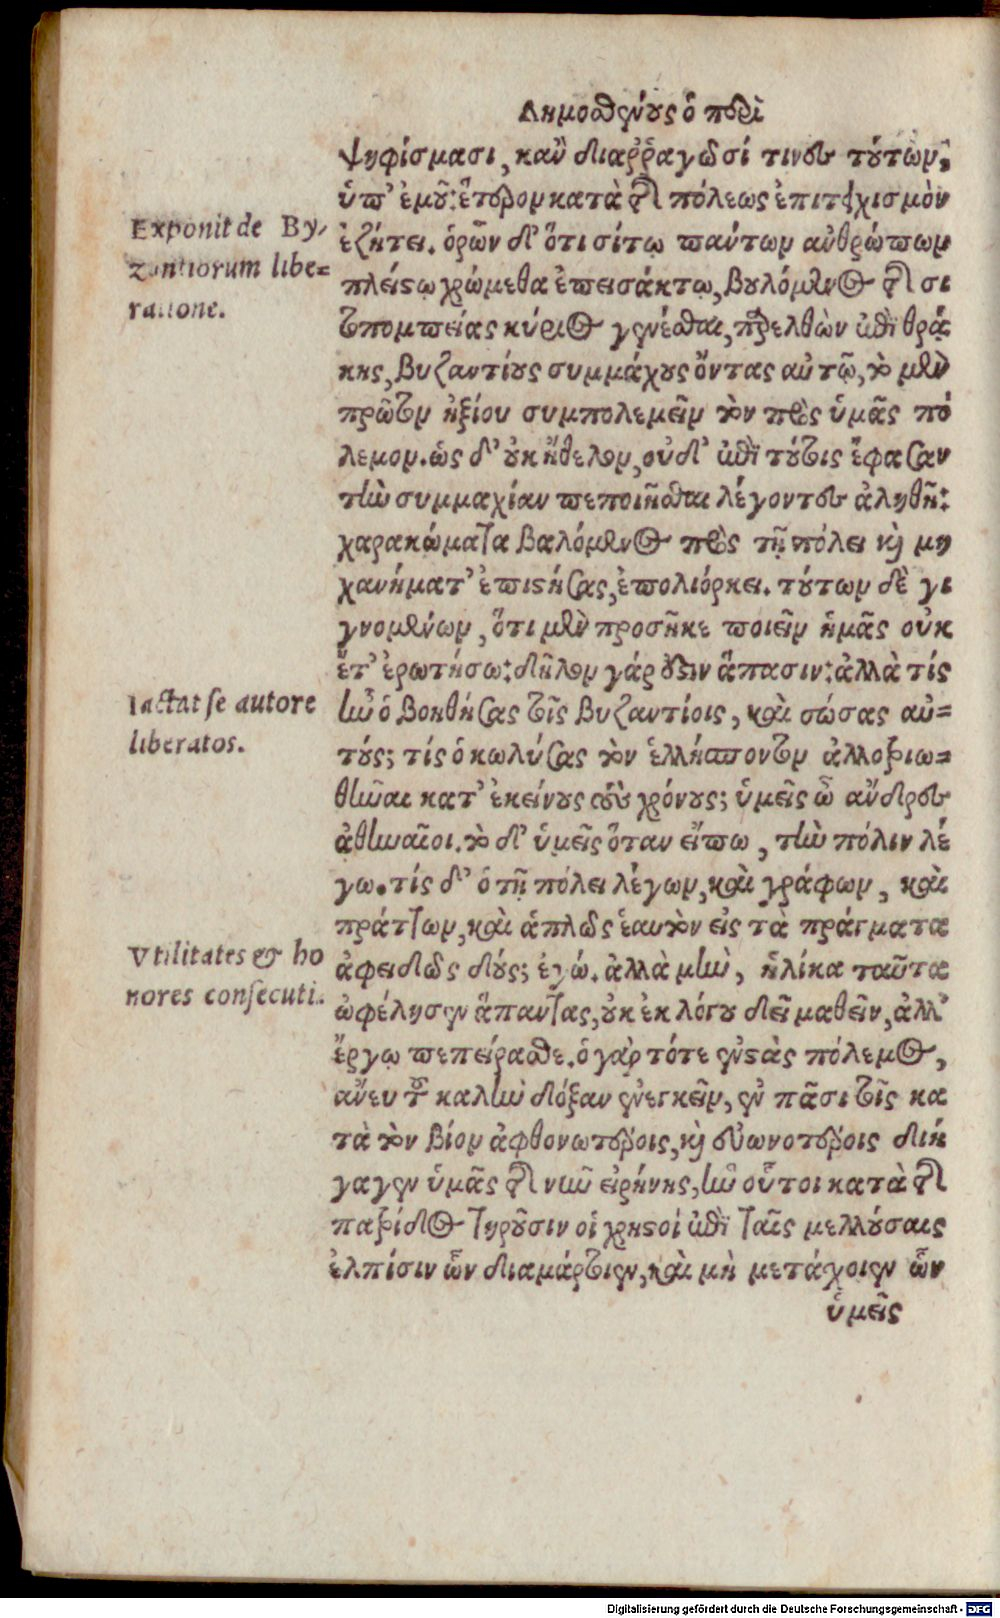 Δημοσθένους ὁ περὶ
ψηφίσμασι, κἂν διαῤῥαγῶσί τινες τούτων,
ὑπ' ἐμοῦ: ἕτερον κατὰ τῆς πόλεως ἐπιτειχισμὸν
Exponit de By-
ἐζήτει. ὁρῶν δ' ὅτι σίτῳ πάντων ἀνθρώπων
zantiorum libe=
πλείστῳ χρώμεθα ἐπεισάκτῳ, βουλόμενος τῆς σι
ratione.
τοπομπείας κύριος γενέσθαι, παρελθὼν ἐπὶ θρᾴ
κης, Βυζαντίους συμμάχους ὄντας αὐτῷ, τὸ μὲν
πρῶτον ἠξίου συμπολεμεῖν τὸν πρὸς ὑμᾶς πό
λεμον. ὡς δ' οὐκ ἤθελον, οὐδ' ἐπὶ τούτοις ἔφασαν
τὴν συμμαχίαν πεποιῆσθαι λέγοντες ἀληθῆ:
χαρακώματα βαλόμενος πρὸς τῇ πόλει καὶ μη
χανήματ' ἐπιστήσας, ἐπολιόρκει. τούτων δὲ γι
γνομένων, ὅτι μὲν προσῆκε ποιεῖν ἡμᾶς οὐκ
ἔτ' ἐρωτήσω: δῆλον γάρ ἐστιν ἅπασιν: ἀλλὰ τίς
Iactat se autore
ἦν ὁ βοηθήσας τοῖς Βυζαντίοις, καὶ σώσας αὐ=
liberatos.
τούς; τίς ὁ κωλύσας τὸν ἑλλήσποντον ἀλλοτριω=
θῆναι κατ' ἐκείνους τοὺς χρόνους; ὑμεῖς ὦ ἄνδρες
ἀθηναῖοι. τὸ δ' ὑμεῖς ὅταν εἴπω, τὴν πόλιν λέ
γω. τίς δ' ὁ τῇ πόλει λέγων, καὶ γράφων, καὶ
πράττων, καὶ ἁπλῶς ἑαυτὸν εἰς τὰ πράγματα
Vtilitates & ho
ἀφειδῶς δούς; ἐγώ. ἀλλὰ μὴν, ἡλίκα ταῦτα
nores consecuti.
ὠφέλησεν ἅπαντας, οὐκ ἐκ λόγου δεῖ μαθεῖν, ἀλλ'
ἔργῳ πεπείρασθε. ὁ γὰρ τότε ἐνστὰς πόλεμος,
ἄνευ τοῦ καλὴν δόξαν ἐνεγκεῖν, ἐν πᾶσι τοῖς κα
τὰ τὸν βίον ἀφθονωτέροις, καὶ εὐωνοτέροις διή
γαγεν ὑμᾶς τῆς νῦν εἰρήνης, ἣν οὗτοι κατὰ τῆς
πατρίδος τηροῦσιν οἱ χρηστοὶ ἐπὶ ταῖς μελλούσαις
ἐλπίσιν ὧν διαμάρτοιεν, καὶ μὴ μετάσχοιεν ὧν
ὑμεῖς
Digitalisierung gefördert durch die Deutsche Forschungsgemeinschaft - DFG